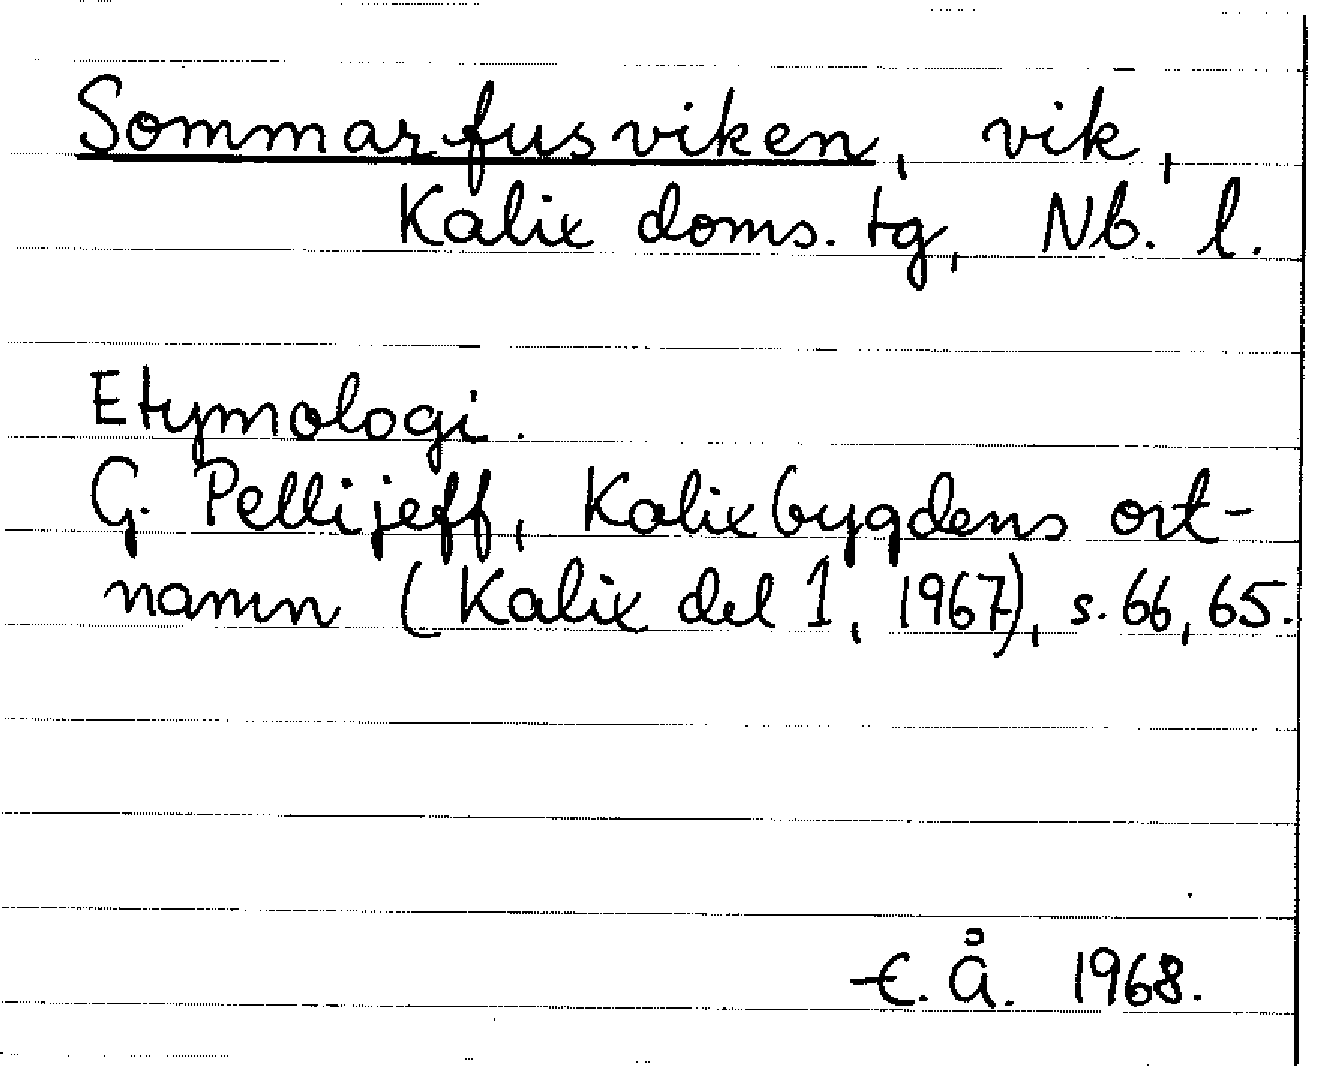 Sommarfusviken, vik,
Kalix doms. tg, Nb. l.
Etymologi.
G. Pellijeff, Kalixbygdens ort-
namn (Kalix del 1, 1967), s. 66, 65.
E. Å. 1968.